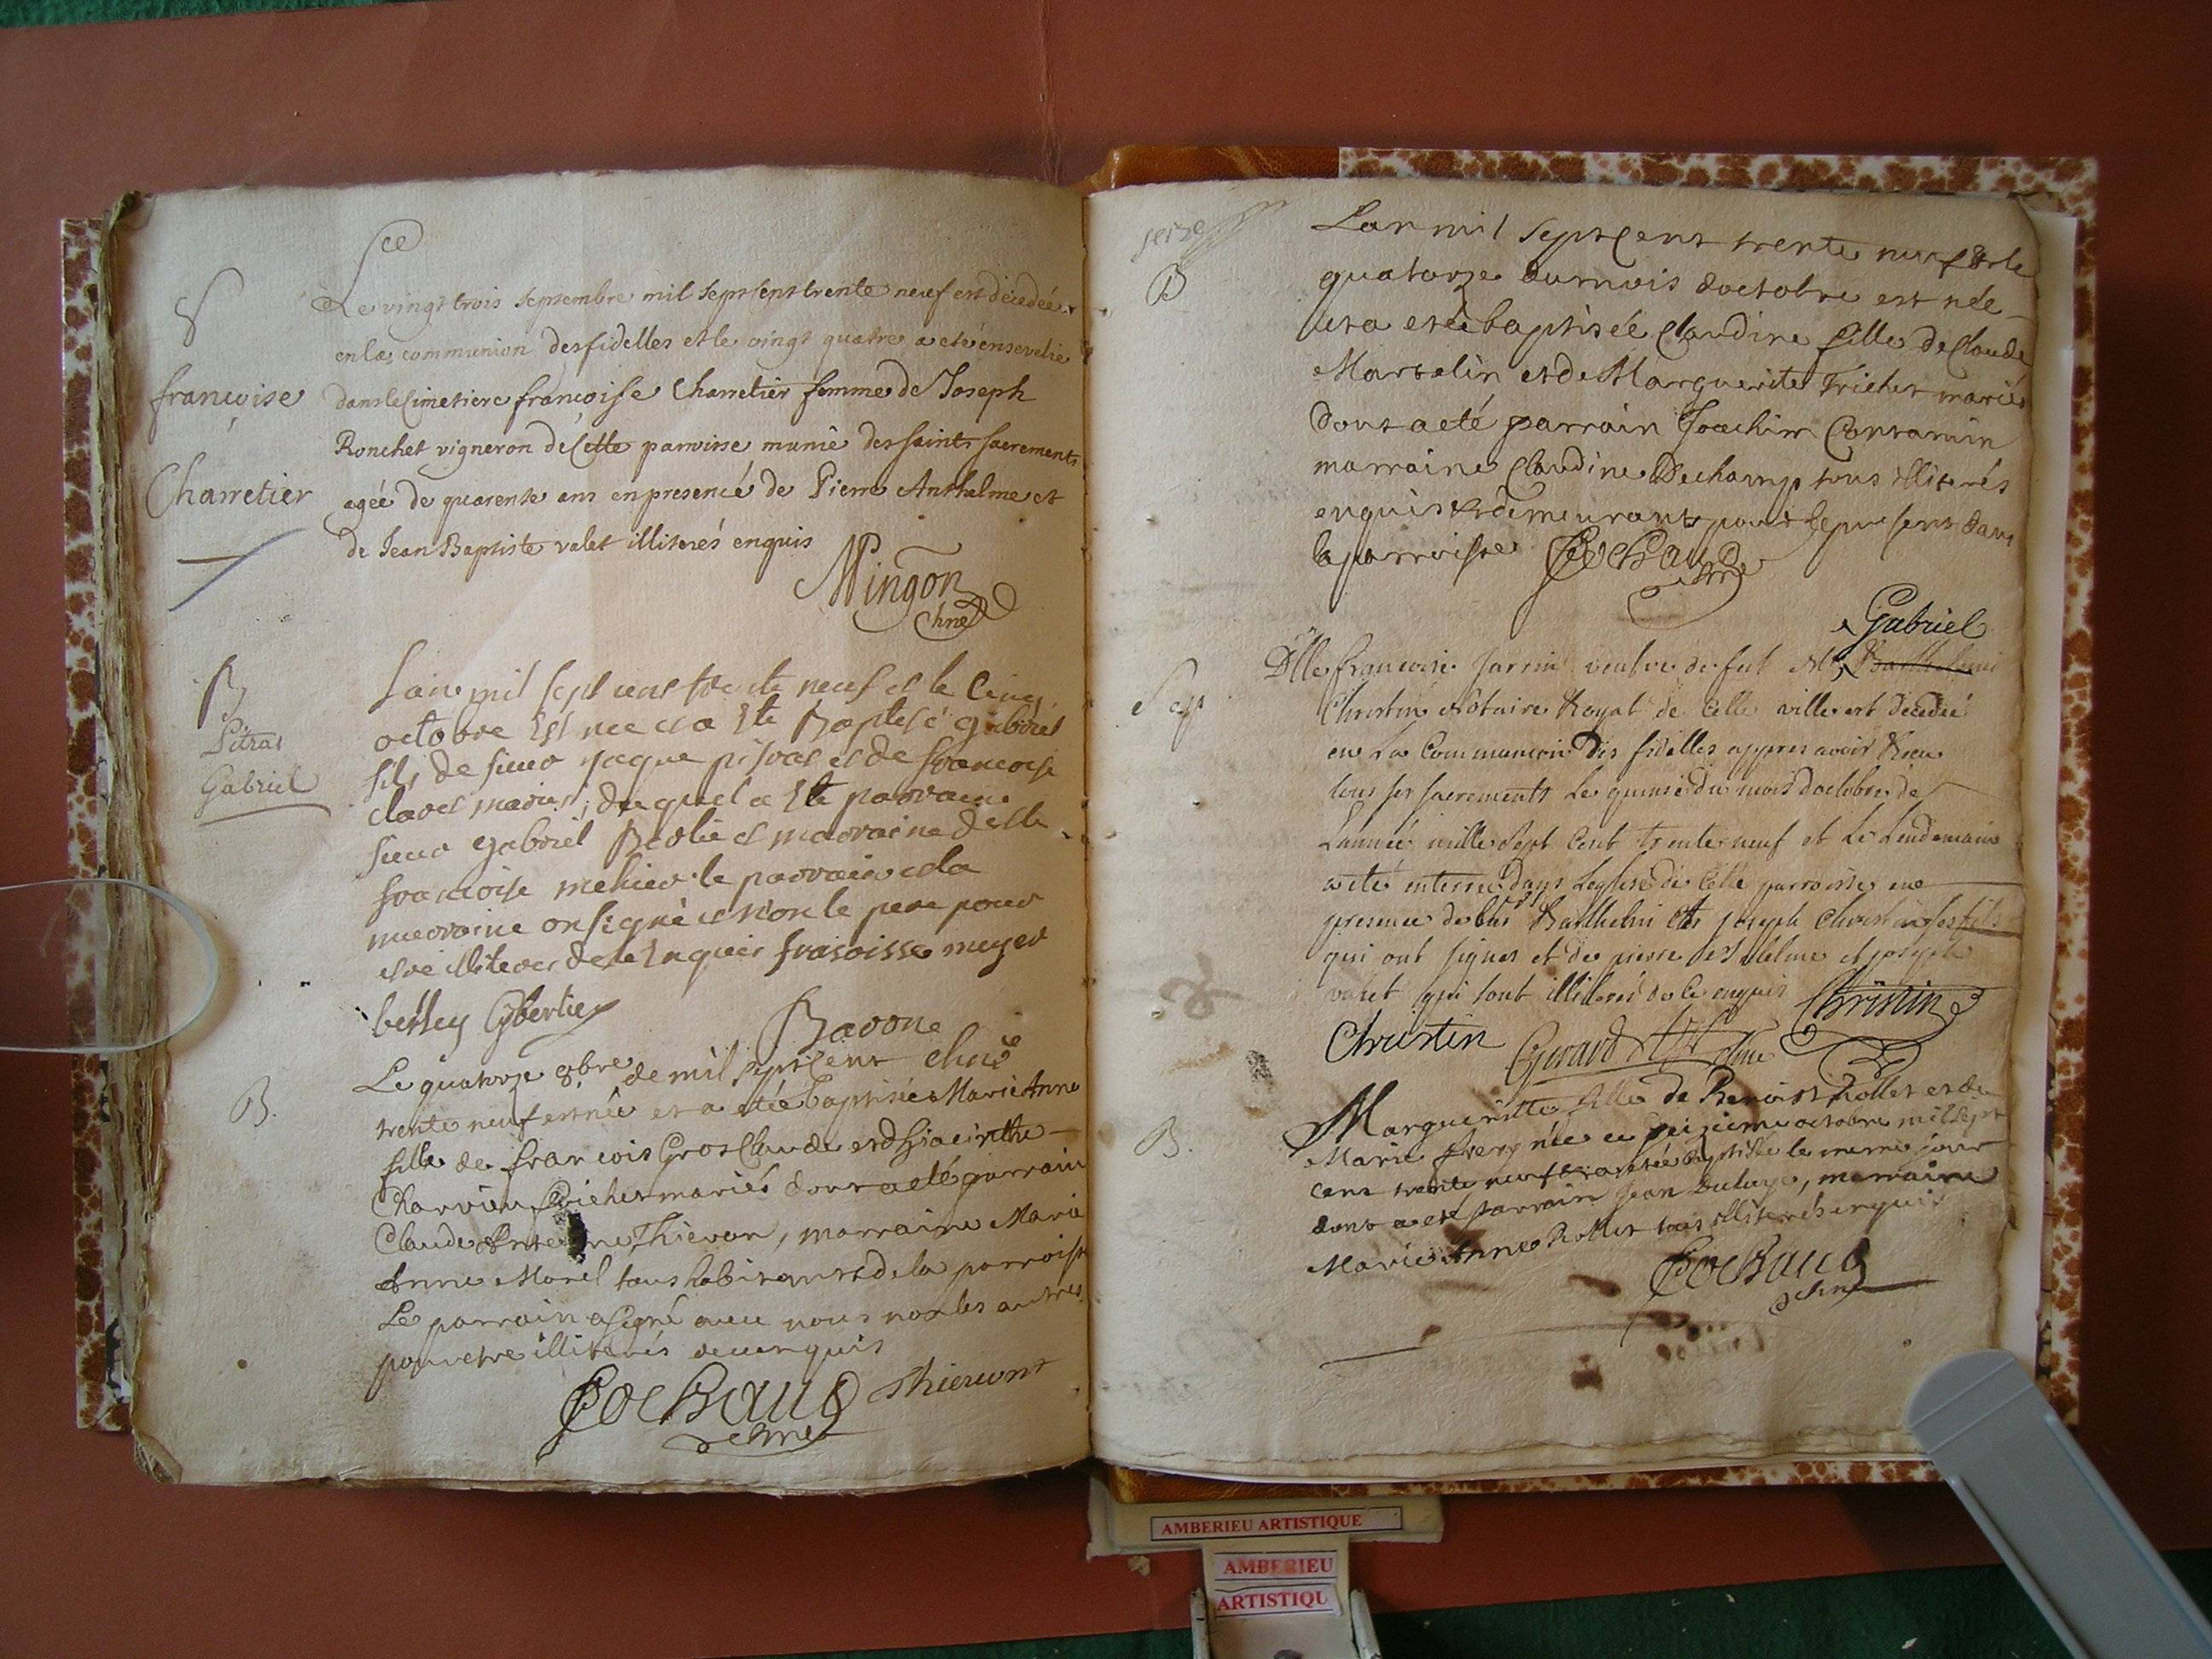 Sce
S
françoise
Charretier
Le vingt trois septembre mil sept cent trente neuf est décedée
en la communion des fidelles et le vingt quatre a eté ensevelie
dans le Cimetiere françoise Charretier femme de Joseph
Ronchet vigneron de Cette parroisse munie des saints sacrements
agée de quarente ans en presence de Pierre Anthelme et
de Jean Baptiste valet illiterés enquis
Mingon
chne
B
Pitras
Gabriel
Lan mil sept cens trente neuf et le cinq
octobre Est nee et a Ete Baptisé gabriel
fils de sieur jaque pitras et de francoise
claret maries, duquel a Ete parrain
sieur gabriel et marraine delle
francoise le parrain et la
marraine on signé et non le pere pour
estre illiterer de ce Enquis
Barone
chne
B.
Le quatorze 8bre de mil sept cent
trente neuf est née et a eté baptisée Marie Anne
fille de francois Gros Claude et d'hiacinthe
Charvieu mariés dont a eté parrain
Claude Thievon, marraine Marie
Anne Morel tous habitants de la parroisse
Le parrain a signé avec nous non les autres
pour etre illiterés de ce enquis
Cochaud Thievont
chne
seize
B
Lan mil sept cent trente neuf & le
quatorze du mois doctobre est née
et a eté baptisée Claudine fille de Claude
Marcelin et de Marguerite Trichet mariés
dont a eté parrain Joachim Contamin
marraine Claudine Dechamp tous illiterés
enquis et demeurants pour le present dans
la parroisse Cochaud
chne
Gabriel
Sep
Dlle francoise Jarrin veufve de feut Mr
Christin Notaire Royal de Cette ville est décédée
en La Communion Des fidelles appres avoir Receu
tous ses sacrements Le quinse du mois doctobre de
Lannée mille Sept Cent trente neuf et Le Lendemain
a eté enterrée dans Leglise de Cette parroisse en
presence de Barthelmi et joseph Christin ses fils
qui ont signer et de pierre et joseph
valet qui sont illiterés de Ce enquis Christin
Christin Girard chne
B.
Margueritte fille de Benoist Rollet et de
Marie née ce seizieme octobre mil sept
cent trente neuf et a eté baptisée le meme jour
dont a eté parrain Jean Duluye, marraine
Marie Anne Rollet tous illiterés enquis
Cochaud
chne
AMBERIEU ARTISTIQUE
AMBERIEU
ARTISTIQU